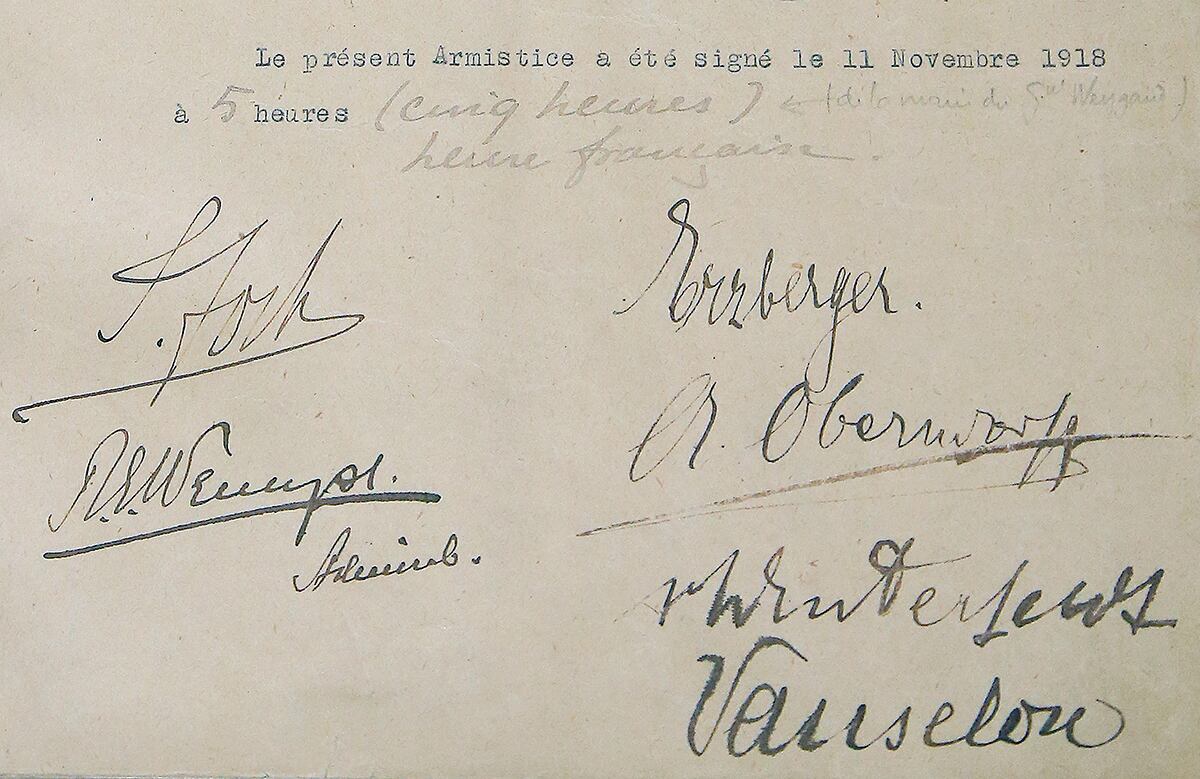 Le présent Armistice a été signé le 11 Novembre 1918
à 5 heures (cinq heures) ← (de la main du Gal Weygand.)
heure française.
F. Foch
Erzberger.
A. Oberndorff
R.E. Wemyss.
Admiral.
v Winterfeldt
Vanselow